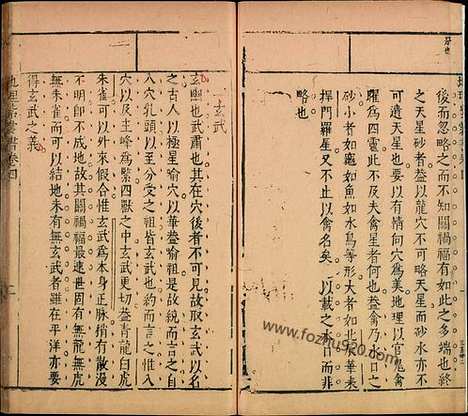 後而忽略之而不知關禍福有如此之多端也終
之天星砂者益以龍穴不可略天星而砂水亦不
可遺天星也要以有情向穴為美地理以官鬼禽
曜為四靈此不及夫禽星者何也益禽乃水口之
砂小者如龜如魚如水鳥等形大者如北辰華表
捍門羅星又不止以禽名矣以載之水口而非
略也
玄武
玄幽也武肅也其在穴後者不可見故取玄武以名
之古人以極星喻穴以華葢喻祖是故統而言之自
入穴乳頭以至分受之祖皆玄武也約而言之
穴以及主峰為緊四獸之中玄武更切益青龍白虎
朱雀可以外來假合惟玄武為本身正脉稍有散漫
不明即不成地故其關禍福最速世固有無龍無虎
無朱雀而可以結地未有無玄武者雖在平洋亦要
得玄武之義
www.fozhu920.com